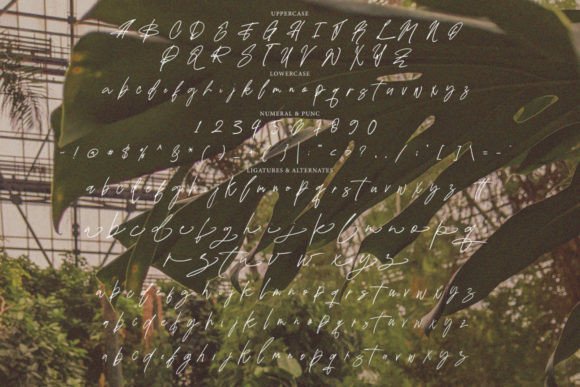 UPPERCASE
A B C D E F G H I J K L M N O
P Q R S T U V W X Y Z
LOWERCASE
a b c d e f g h i j k l m n o p q r s t u v w x y z
NUMERAL & PUNC
1 2 3 4 5 6 7 8 9 0
LIGATURES & ALTERNATES
a b c d e f g h i j k l m n o p q r s t u v w x y z tt
a b c d e f g h i j k l m n o p q
r s t u v w x y z
a b c d e f g h i j k l m n o p q r s t u v w x y z
a b c d e f g h i j k l m n o p q r s t u v w x y z
a b c d e f g h i j k l m n o p q r s t u v w x y z